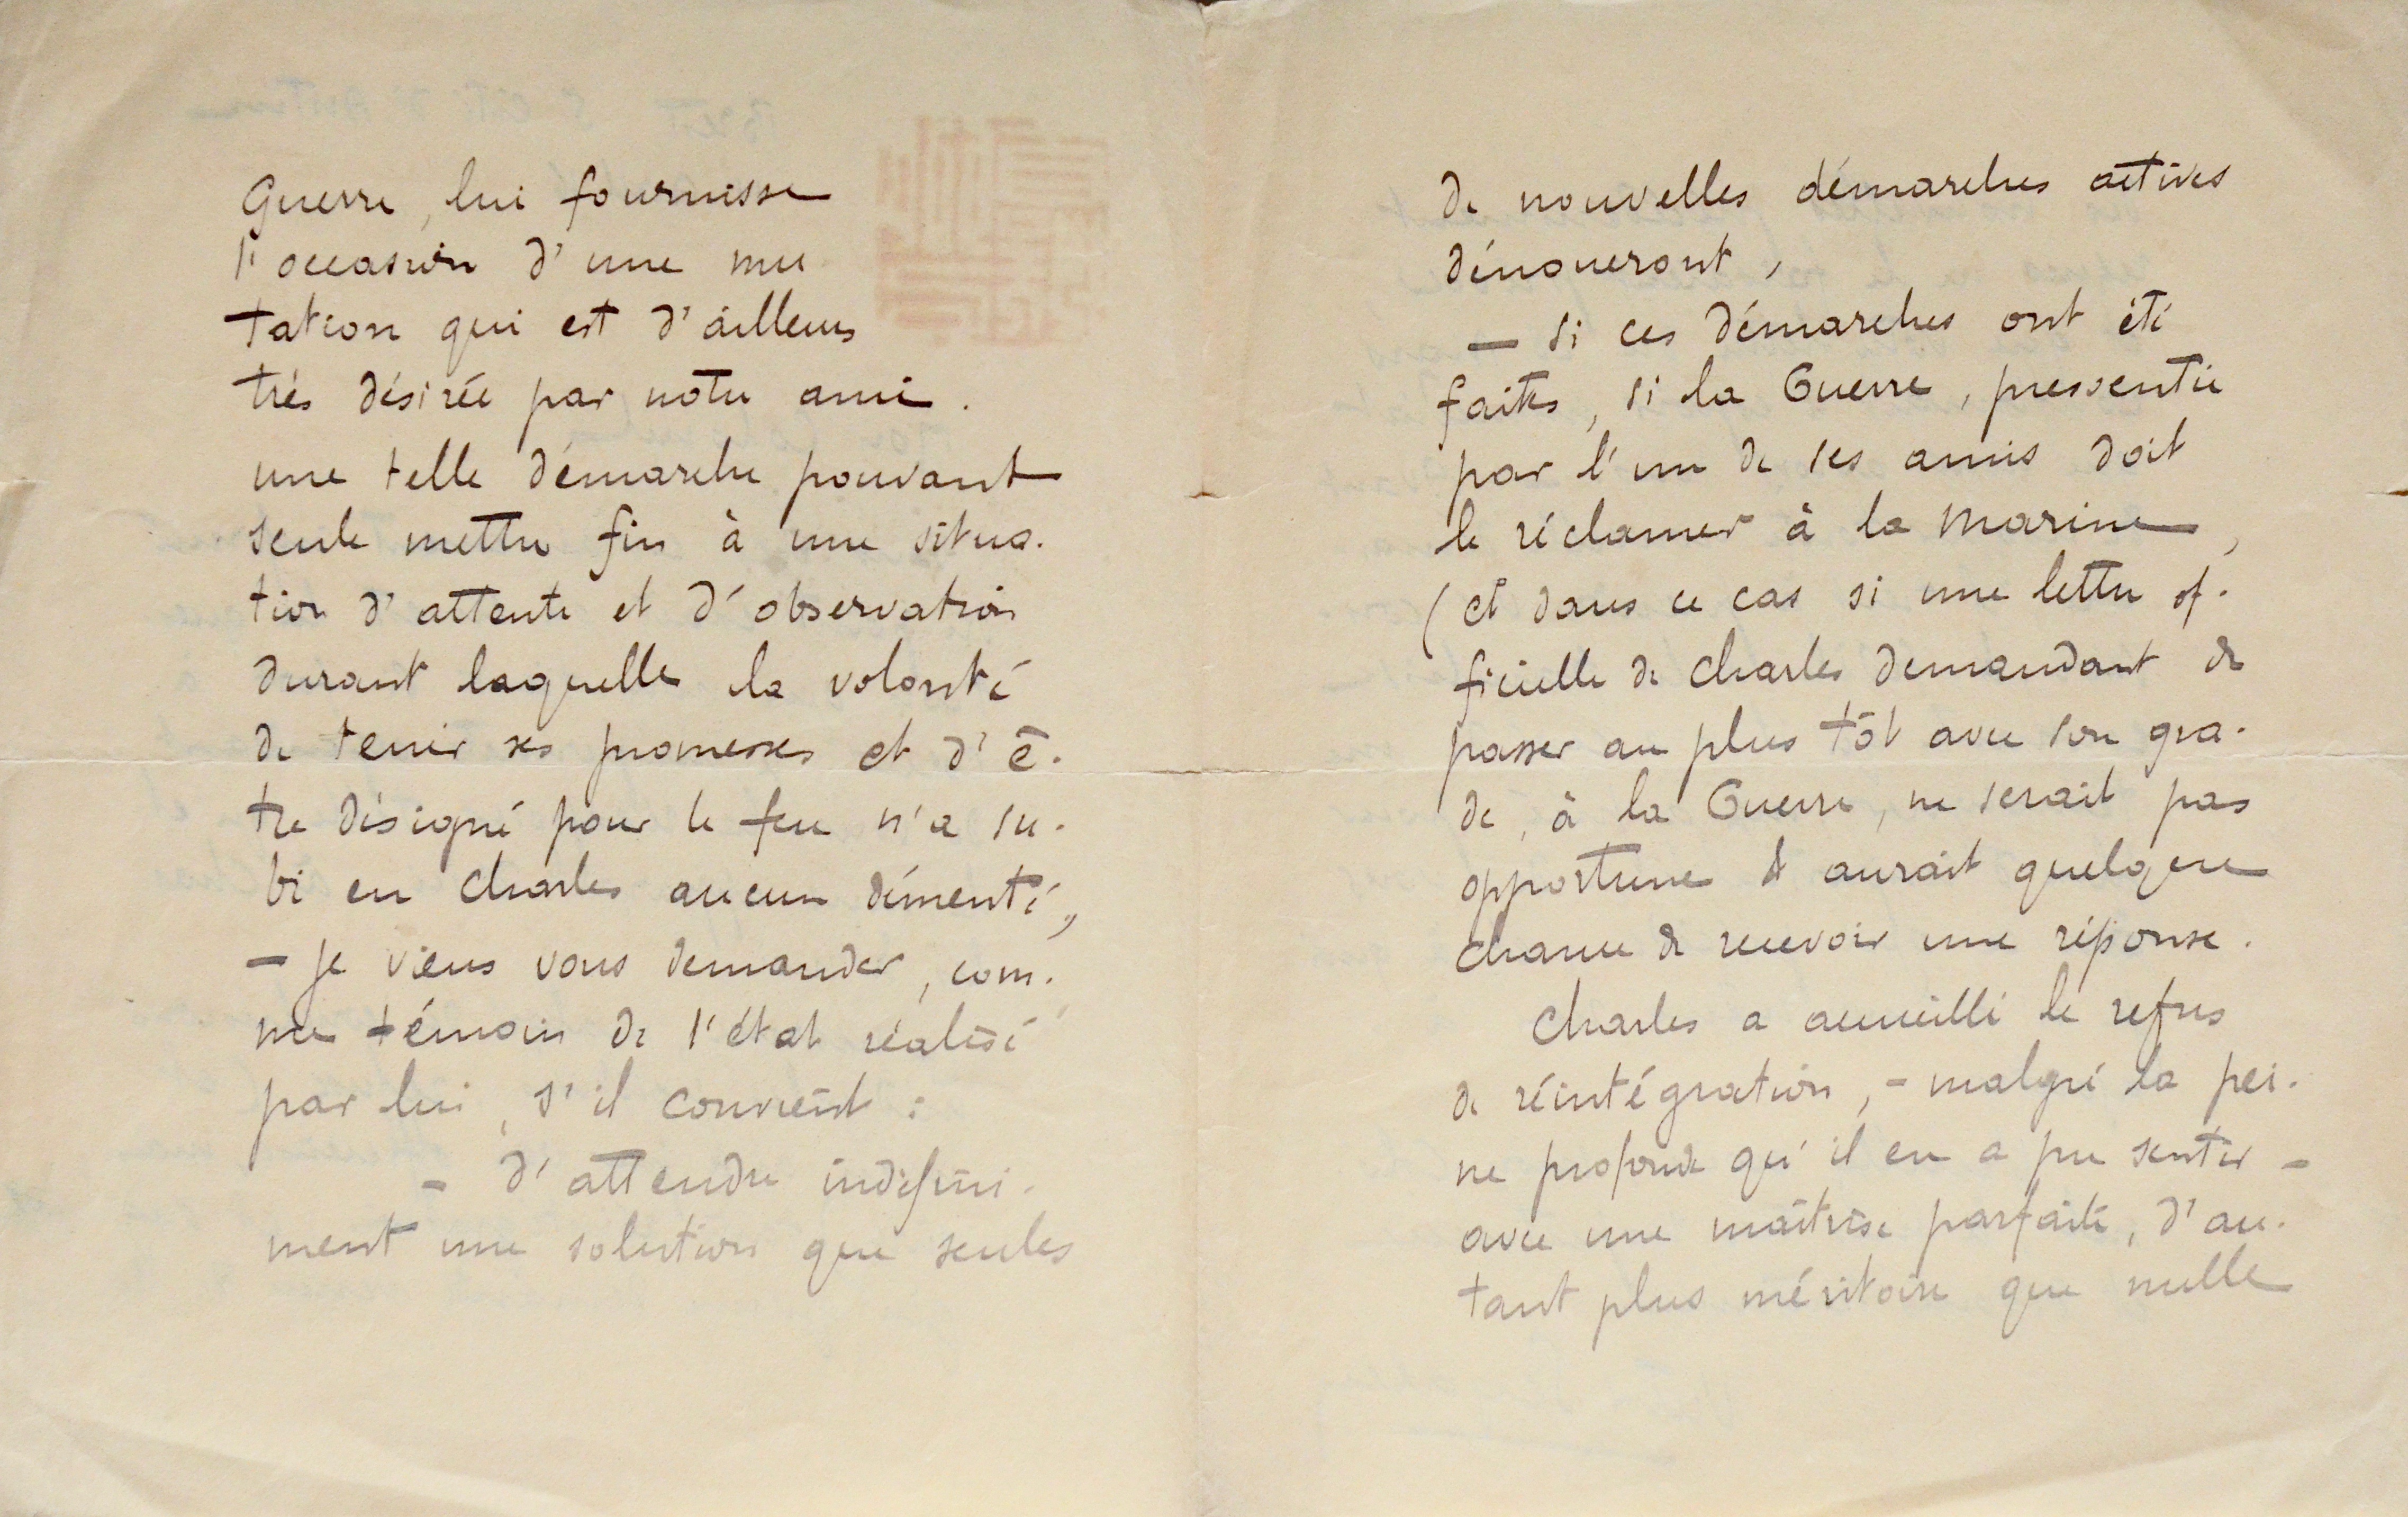 Guerre, lui fournisse
l'occasion d'une mu
tation qui est d'ailleurs
très désirée par notre ami.
une telle démarche pouvant
seule mettre fin à une situa-
tion d'attente et d'observation
durant laquelle la volonté
de tenir ses promesses et d'ê-
tre désigné pour le feu n'a su-
bi en Charles aucun démenti,
- je viens vous demander, com-
me témoin de l'état réalisé
par lui, s'il convient :
- d'attendre indéfini-
ment une solution que seules
de nouvelles démarches actives
dénoueront,
— si ces démarches ont été
faites, si la Guerre, pressentie
par l'un de ses amis doit
le réclamer à la Marine,
(et dans ce cas si une lettre of-
ficielle de Charles demandant de
passer au plus tôt avec son gra-
de, à la Guerre, ne serait pas
opportune & aurait quelque
chance de recevoir une réponse.
Charles a accueilli le refus
de réintégration, - malgré la pei-
ne profonde qu'il en a pu sentir -
avec une maîtrise parfaite, d'au-
tant plus méritoire que nulle